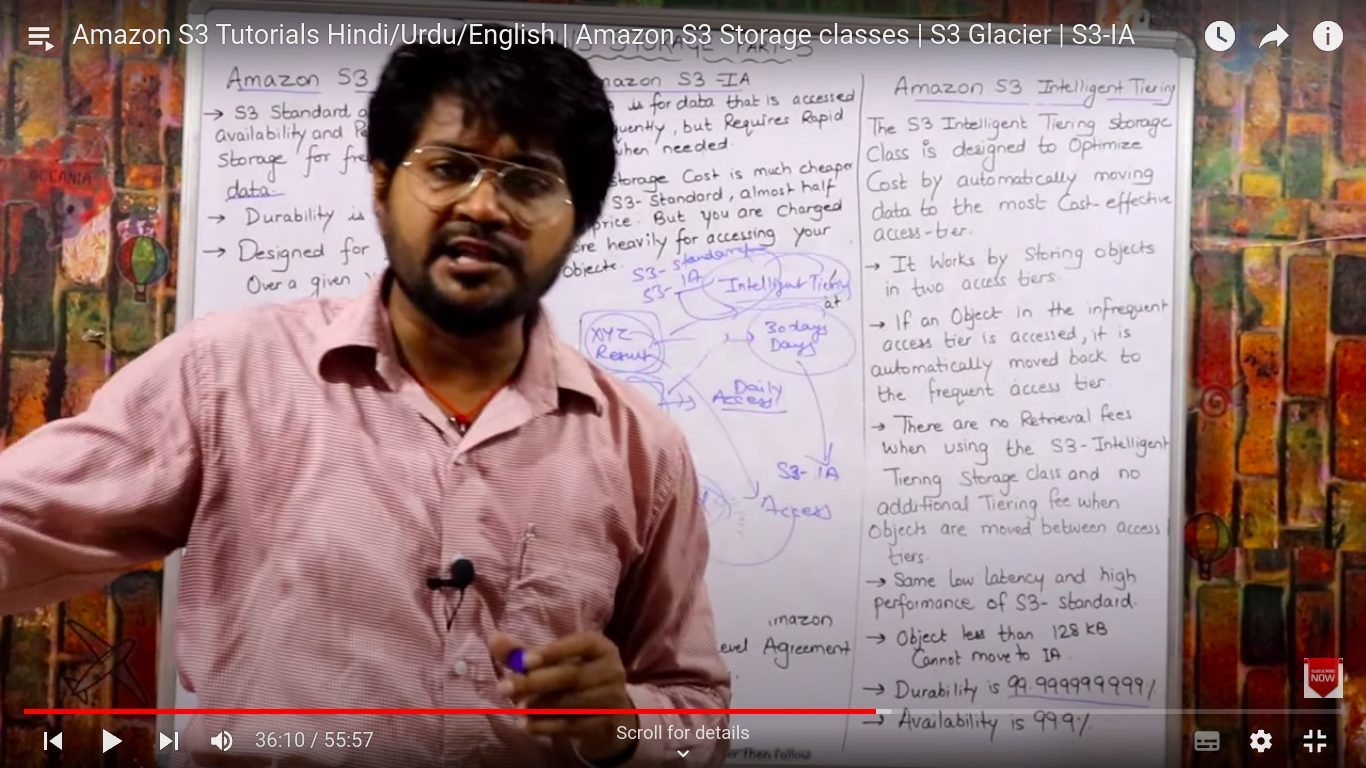 Amazon S3 Tutorials Hindi/Urdu/English | Amazon S3 Storage classes | S3 Glacier | S3-IA
Amazon S3
→ S3 Standard
availability and
Storage for
data.
→ Durability is
→ Designed for
Over a given
S3-IA
is for data that is accessed
but Requires Rapid
when needed.
Storage Cost is much cheaper
S3-Standard, almost half
price. But you are charged
heavily for accessing your
S3-Standard
S3-IA
Intelligent Tiering
at
XYZ
Result
30 days
Days
Daily
Access
S3-IA
Access
Agreement
Amazon S3 Intelligent Tiering
The S3 Intelligent Tiering storage
Class is designed to Optimize
Cost by automatically moving
data to the most Cost-effective
access-tier.
→ It Works by Storing objects
in two access tiers.
→ If an Object in the infrequent
access tier is accessed, it is
automatically moved back to
the frequent access tier.
→ There are no Retrieval fees
when using the S3-Intelligent
Tiering Storage class and no
additional Tiering fee when
Objects are moved between access
tiers.
→ Same low latency and high
performance of S3-Standard.
→ Object less than 128 KB
Cannot move to IA.
→ Durability is 99.999999999%
→ Availability is 99.9%
OCEANIA
SUBSCRIBE
NOW
36:10 / 55:57
Scroll for details
Then follow